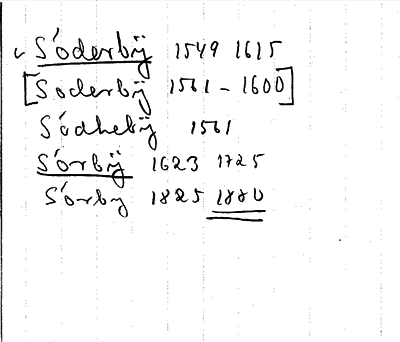 Söderbÿ 1549 1615
[Soderbÿ 1561 - 1600]
Södhebÿ 1561
Sörbÿ 1623 1725
Sörby 1825 1880